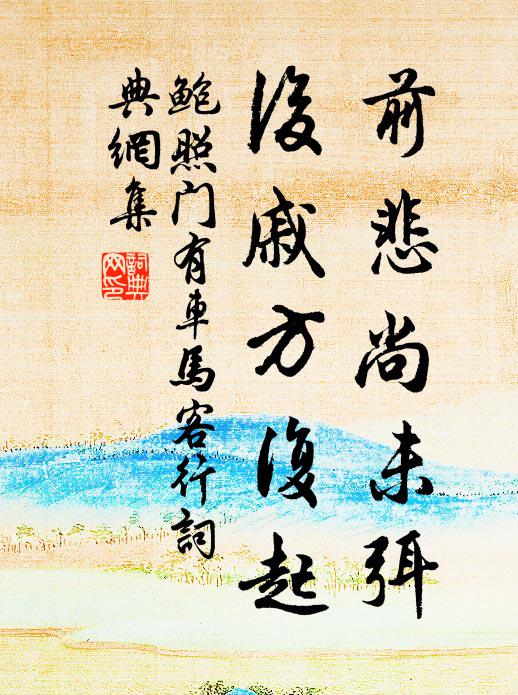 前悲尚未弭
後戚方復起
鮑照门有車馬客行詞
典網集
詞典网印